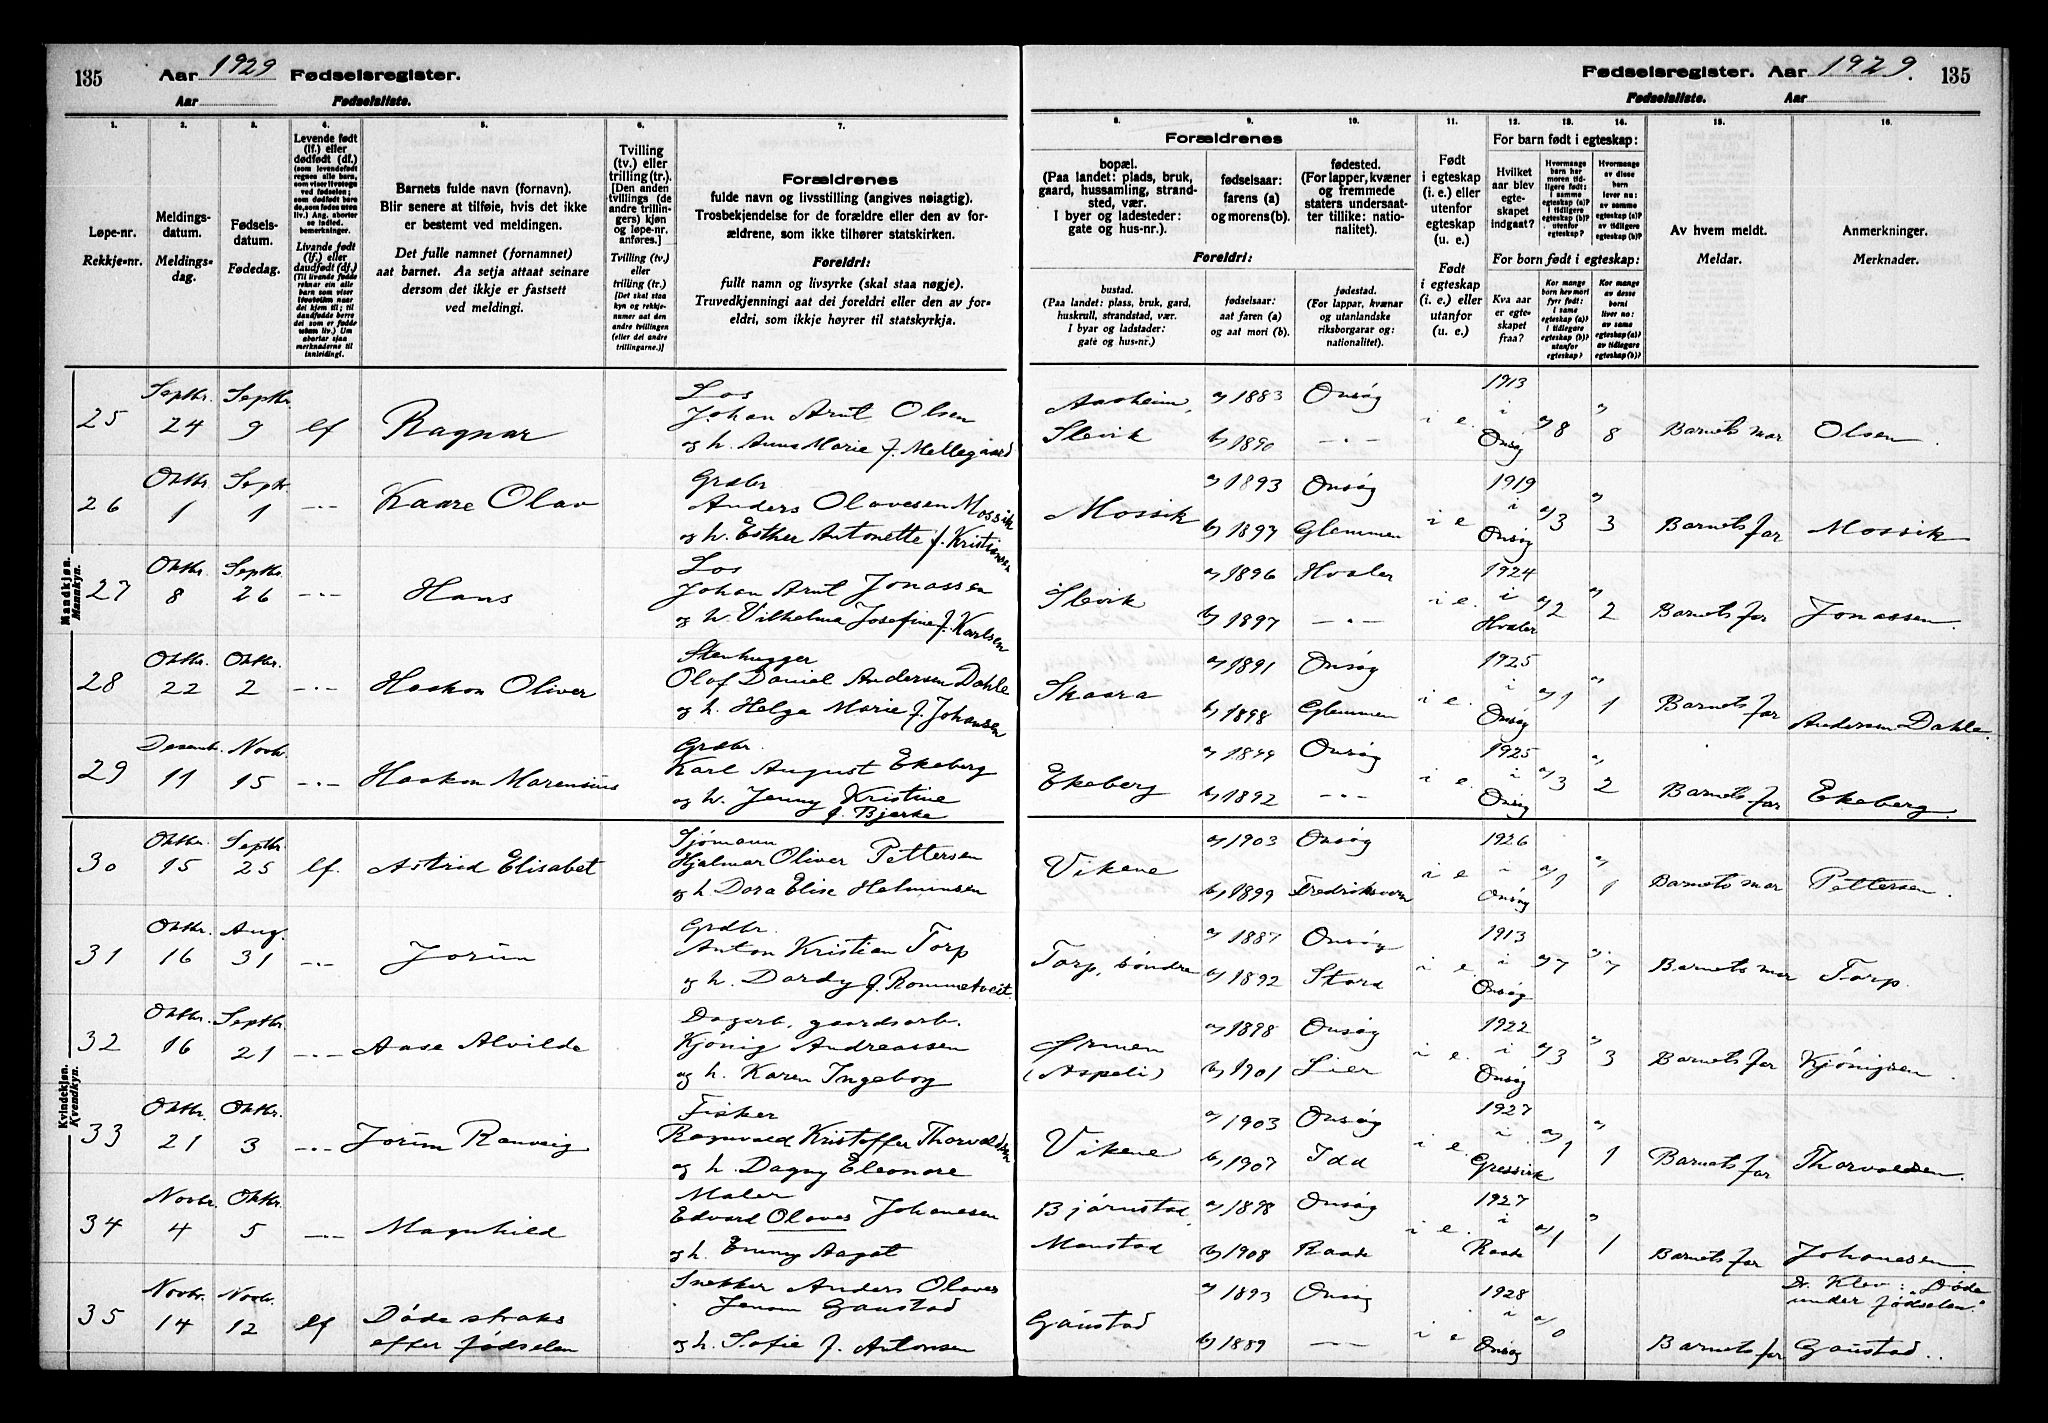 135 Aar 1929 Fødselsregister.
Aar Fødselsliste.
Fødselsregister. Aar 1929. 135
Fødselsliste. Aar
1.
Løpe-nr.
Rekkje-nr.
2.
Meldings-
datum.
Meldings-
dag.
3.
Fødsels-
datum.
Fødedag.
4.
Levende født
(lf.) eller
dødfødt (df.)
5.
Barnets fulde navn (fornavn).
Blir senere at tilføie, hvis det ikke
er bestemt ved meldingen.
Det fulle namnet (fornamnet)
aat barnet. Aa setja attaat seinare
dersom det ikkje er fastsett
ved meldingi.
6.
Tvilling
(tv.) eller
trilling (tr.)
[Den anden
tvillings (de
andre trillin-
gers) kjøn
og løpe-nr.
anføres.]
Tvilling (tv.)
eller
trilling (tr.)
[Det skal staa
kyn og rekkje-
numer aat den
andre tvillingen
(eller dei andre
trillingarne.)]
7.
Forældrenes
fulde navn og livsstilling (angives nøiagtig).
Trosbekjendelse for de forældre eller den av for-
ældrene, som ikke tilhører statskirken.
Foreldri:
fullt namn og livsyrke (skal staa nøgje).
Truvedkjenningi aat dei foreldri eller den av for-
eldri, som ikkje høyrer til statskyrkja.
Forældrenes
8.
bopæl.
(Paa landet: plads, bruk,
gaard, hussamling, strand-
sted, vær.
I byer og ladesteder:
gate og hus-nr.).
9.
fødselsaar:
farens (a)
og morens (b).
10.
fødested.
(For lapper, kvæner
og fremmede
staters undersaat-
ter tillike: natio-
nalitet).
Foreldri:
bustad.
(Paa landet: plass, bruk, gard,
huskrull, strandstad, vær.
I byar og ladstader:
gate og hus-nr.)
fødselsaar:
aat faren (a)
og aat mori (b).
fødestad.
(For lappar, kvænar
og utanlandske
riksborgarar og:
nationalitet).
11.
Født
i egteskap
(i. e.) eller
utenfor
egteskap
(u. e.)
Født
i egteskap
(i. e.) eller
utanfor
(u. e.)
12. 13. 14.
For barn født i egteskap:
Hvilket
aar blev
egte-
skapet
indgaat?
For born født i egteskap:
Kva aar
er egte-
skapet
fraa?
15.
Av hvem meldt.
Meldar.
16.
Anmerkninger.
Merknader.
Mandkjøn.
Mannkyn.
25 Septbr. 24 Septbr. 9 lf Ragnar
Los
Johan Arnt Olsen
og h. Anna Marie f. Mellegaard
Aaheim, Slevik a) 1883 Onsøy b) 1890 —"— i e. 1913 i Onsøy a) 8 a) 8 Barnets mor Olsen.
26 Oktbr. 1 Septr. 1 —"— Kaare Olav
Grdbr.
Anders Olavesen Mossik
og h. Esther Antonette f. Kristiansen
Mossik a) 1893 Onsøy b) 1897 Glemmen i e. 1919 i Onsøy a) 3 a) 3 Barnets far Mossik
27 Oktbr. 8 Septbr. 26 —"— Hans
Los
Johan Arnt Jonassen
og h. Vilhelma Josefine f. Karlsen
Slevik a) 1896 Hvaler b) 1897 —"— i e. 1924 i Hvaler a) 2 a) 2 Barnets far Jonassen.
28 Oktbr. 22 Oktbr. 2 —"— Haakon Oliver
Stenhugger
Olaf Daniel Andersen Dahle
og h. Helga Marie f. Johansen
Skaara a) 1891 Onsøy b) 1898 Glemmen i e. 1925 i Onsøy a) 1 a) 1 Barnets far Andersen Dahle.
29 Desemb. 11 Novbr. 15 —"— Haakon Marensius
Grdbr.
Karl August Ekeberg
og h. Jenny Kristine
f. Bjerke
Ekeberg Onsøy b) 1892 —"— i e. 1925 i Onsøy a) 3 a) 2 Barnets far Ekeberg.
Kvindekjøn.
Kvendkyn.
30 Oktbr. 15 Septbr. 25 lf. Astrid Elisabet
Sjømann
Hjalmar Oliver Pettersen
og h. Dora Elise
Vikene a) 1903 Onsøy b) 1899 Fredriksvern i e 1926 i Onsøy a) 1 a) 1 Barnets mor Pettersen.
31 Oktbr. 16 Aug. 31 —"— Jorun
Grdbr.
Anton Kristian Torp
og h. Dordy f. Rommetveit.
Torp, søndre a) 1887 Onsøy b) 1892 Stord i e. 1913 i Onsøy a) 7 7 Barnets mor Torp.
32 Oktbr. 16 Septbr. 21 —"— Aase Alvilde
Dagarb, gaardsarb.
Kjønig Andreassen
og h. Karen Ingeborg
Ørmen (Aspeli) a) 1898 Onsøy b) 1901 Lier i e. 1922 i Onsøy a) 3 a) 3 Barnets far Kjønigsen.
33 Oktbr. 21 Oktbr. 3 —"— Jorun Ranveig
Fisker
Ragnvald Kristoffer Thorvaldsen
og h. Dagny Eleonore
Vikene a) 1903 Onsøy b) 1907 Idd i e. 1927 i Gressvik a) 1 a) 1 Barnets far Thorvaldsen.
34 Novbr. 4 Oktbr. 5 —"— Magnhild
Maler
Edvard Olaves Johansen
og h. Emmy Aagot
Bjørnstad, Monstad a) 1898 Onsøy b) 1908 Raade i e. 1927 i Raade a) 1 a) 1 Barnets far Johanesen
35 Novbr. 14 Novbr. 12 lf Døde straks
efter fødselen
Snekker Anders Olaves
Jensen Gaustad
og h. Sofie f. Antonsen
Gaustad a) 1893 Onsøy b) 1889 —"— i e 1928 i Onsøy a) 0 Barnets far Gaustad.
Dr. Klev: "Døde
under fødselen."